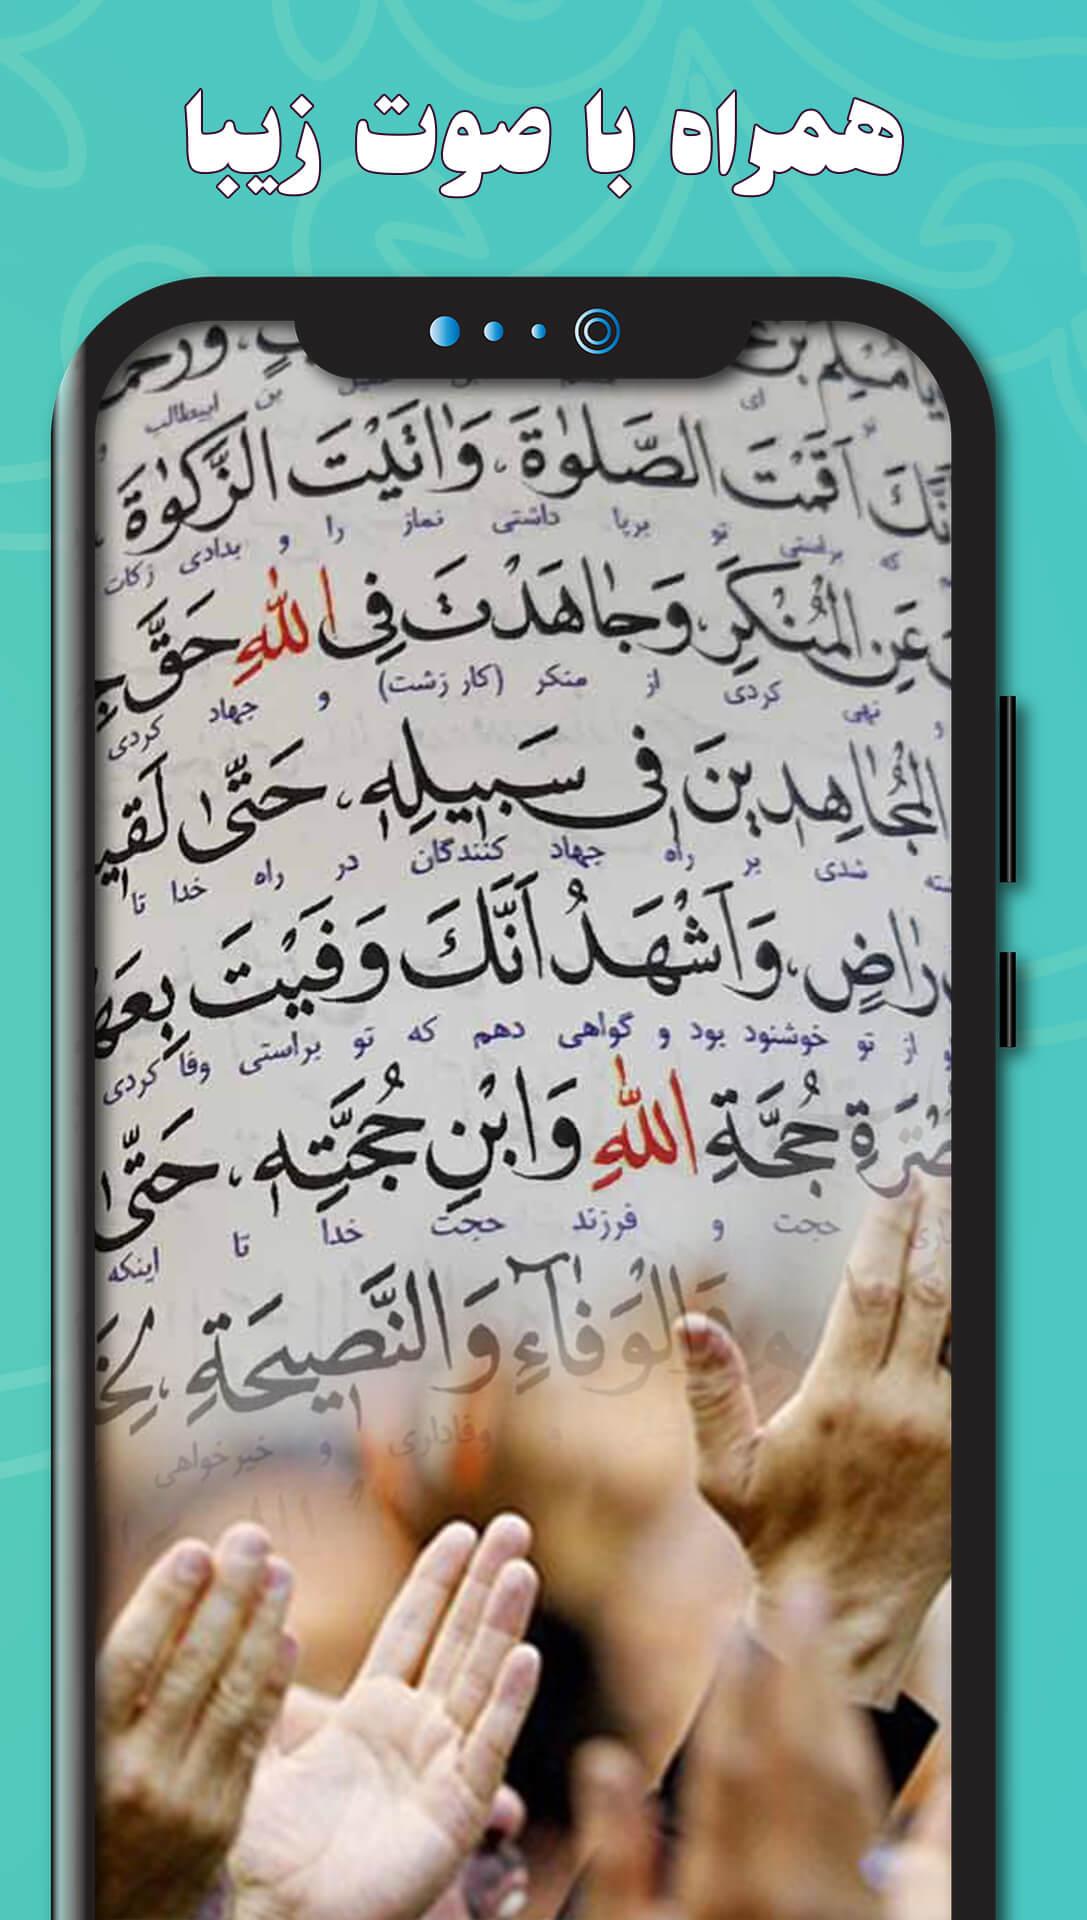 همراه با صوت زیبا
یا مُسْلِمَ بْنَ
ای بن ابیطالب و
نَّكَ اَقَمْتَ الصَّلٰوةَ، وَاٰتَیْتَ الزَّكٰوةَ
که براستی تو برپا داشتی نماز را و بدادی زکات
عَنِ الْمُنْكَرِ، وَجٰاهَدْتَ فِی اللهِ حَقَّ
و نهی کردی از منکر (کار زشت) و جهاد کردی
الْمُجٰاهِدینَ فی سَبیلِهِ، حَتّیٰ
شدی بر راه جهاد کنندگان در راه خدا تا
رٰاضٍ، وَاَشْهَدُ اَنَّكَ وَفَیْتَ
از تو خوشنود بود و گواهی دهم که تو براستی وفا کردی
حُجَّةِ اللهِ وَابْنِ حُجَّتِهِ، حَتّیٰ
حجت و فرزند حجت خدا تا اینکه
وَالْوَفٰآءِ وَالنَّصیحَةِ،
وفاداری و خیرخواهی